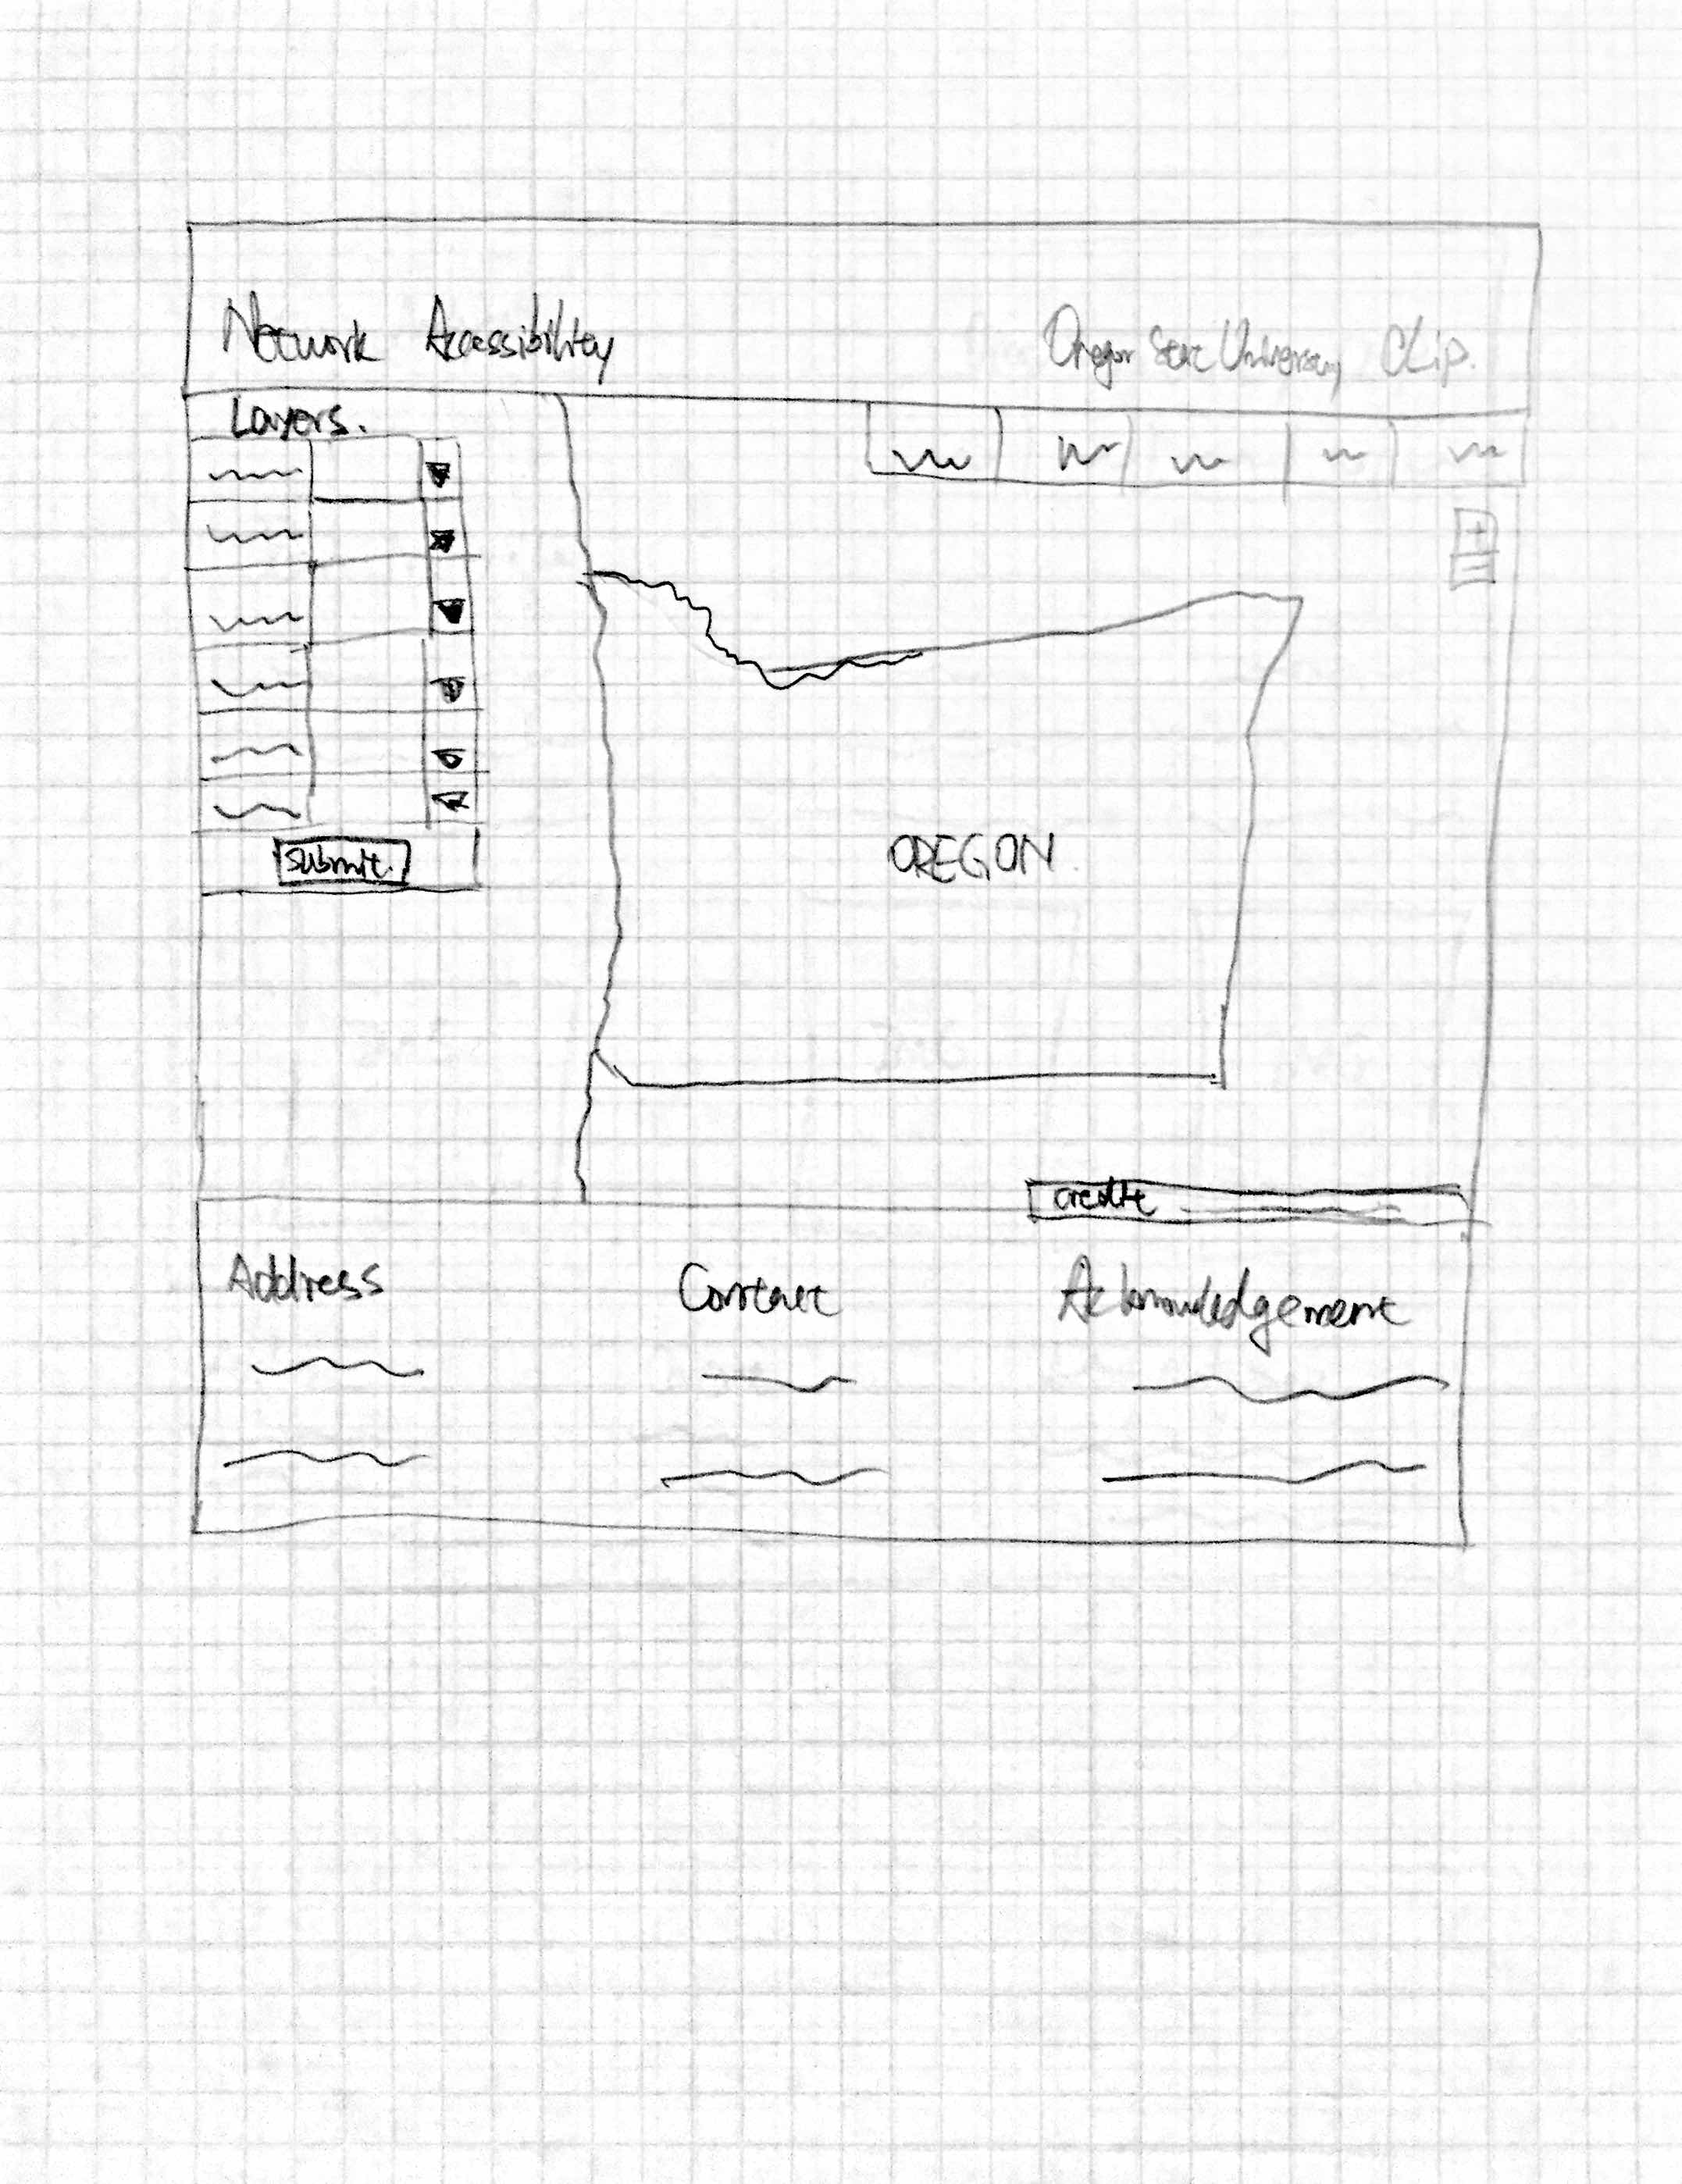 Network Accessibility
Oregon State University CLip.
Layers.
Submit.
+
OREGON.
credit
Address
Contact
Acknowledgement